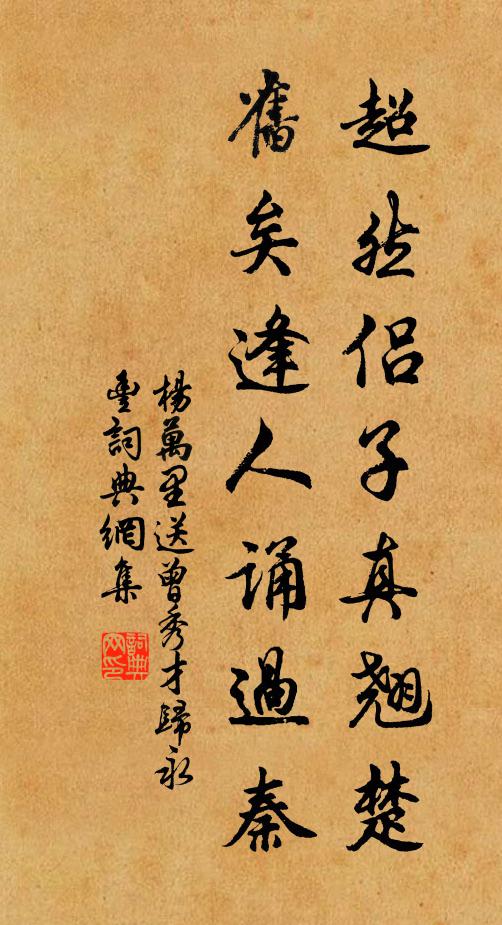 超然侶子真翹楚
舊矣逢人誦過秦
楊萬里送曾秀才歸永
豐詞典網集
詞典網印